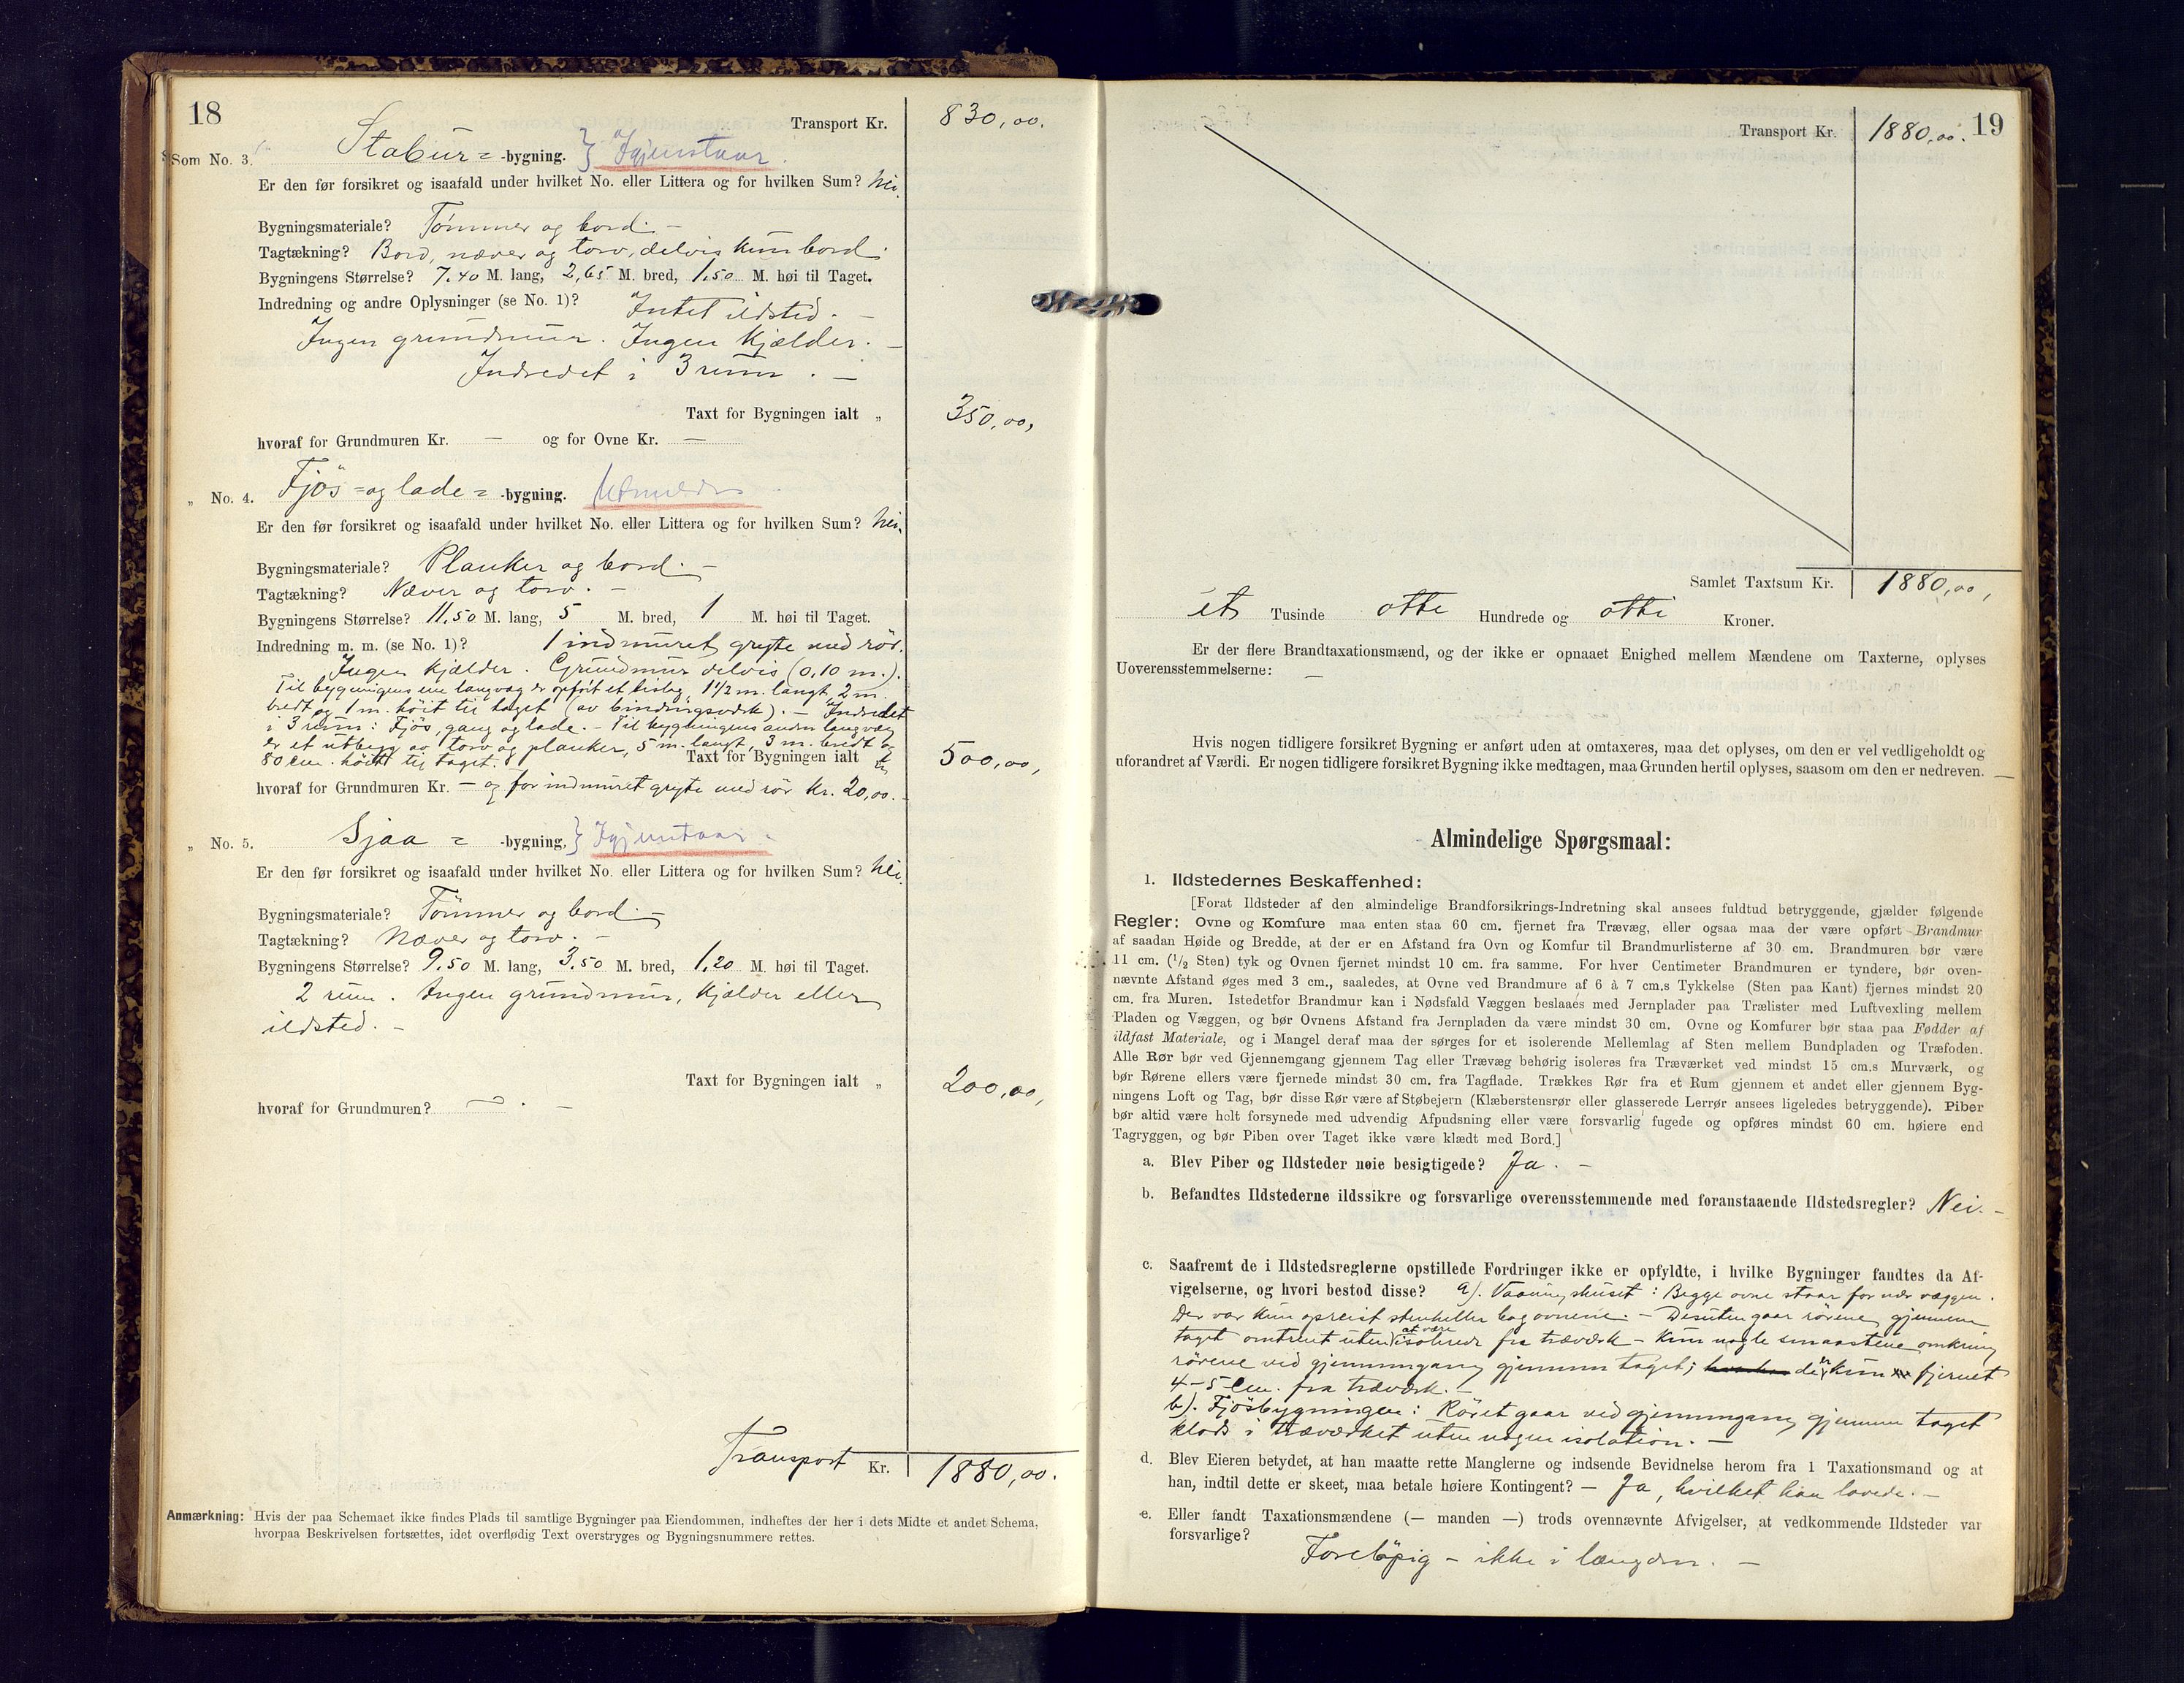 18
Transport Kr. 830,00.
Som No. 3. Stabur= -bygning. } Igjenstaar.
Er den før forsikret og isaafald under hvilket No. eller Littera og for hvilken Sum? Nei.
Bygningsmateriale? Tömmer og bord. —
Tagtækning? Bord, næver og torv, delvis kun bord.
Bygningens Størrelse? 7,40 M. lang, 2,65 M. bred, 1,50 M. høi til Taget.
Indredning og andre Oplysninger (se No. 1)? Intet ildsted. —
Ingen grundmur. Ingen Kjælder. —
Indredet i 3 rum. —
Taxt for Bygningen ialt „ 350,00,
hvoraf for Grundmuren Kr. — og for Ovne Kr. —
„ No. 4. Fjös= og lade= -bygning.
Er den før forsikret og isaafald under hvilket No. eller Littera og for hvilken Sum? Nei.
Bygningsmateriale? Planker og bord. —
Tagtækning? Næver og torv. —
Bygningens Størrelse? 11,50 M. lang, 5 M. bred, 1 M. høi til Taget.
Indredning m. m. (se No. 1)? 1 indmuret gryte med rör.
Ingen kjælder. Grundmur delvis (0,10 m.).
Til bygningens ene langvæg er opfört et bislag, 1 1/2 m. langt, 2 m.
bredt og 1 m. höit til taget (av bindingsverk). — Indredet
i 3 rum: Fjös, gang og lade. — Til bygningens anden langvæg
er et utbygg av torv og planker, 5 m. langt, 3 m. bredt og
80 cm. höit til taget.
Taxt for Bygningen ialt „ 500,00,
hvoraf for Grundmuren Kr. — og for indmuret gryte med rör kr. 20,00.
„ No. 5. Sjaa = -bygning, } Igjenstaar.
Er den før forsikret og isaafald under hvilket No. eller Littera og for hvilken Sum? Nei.
Bygningsmateriale? Tömmer og bord. —
Tagtækning? Næver og torv. —
Bygningens Størrelse? 9,50 M. lang, 3,50 M. bred, 1,20 M. høi til Taget.
2 rum. Ingen grundmur, kjælder eller
ildsted. —
Taxt for Bygningen ialt „ 200,00,
hvoraf for Grundmuren? — . —
Transport Kr. 1880,00.
Anmærkning: Hvis der paa Schemaet ikke findes Plads til samtlige Bygninger paa Eiendommen, indheftes der her i dets Midte et andet Schema,
hvorpaa Beskrivelsen fortsættes, idet overflødig Text overstryges og Bygningsnummere rettes.
19
Transport Kr. 1880,00.
Samlet Taxtsum Kr. 1880,00,
et Tusinde otte Hundrede og otti Kroner.
Er der flere Brandtaxationsmænd, og der ikke er opnaaet Enighed mellem Mændene om Taxterne, oplyses
Uoverensstemmelserne: —
Hvis nogen tidligere forsikret Bygning er anført uden at omtaxeres, maa det oplyses, om den er vel vedligeholdt og
uforandret af Værdi. Er nogen tidligere forsikret Bygning ikke medtagen, maa Grunden hertil oplyses, saasom om den er nedreven. —
Almindelige Spørgsmaal:
1. Ildstedernes Beskaffenhed:
[Forat Ildsteder af den almindelige Brandforsikrings-Indretning skal ansees fuldtud betryggende, gjælder følgende
Regler: Ovne og Komfure maa enten staa 60 cm. fjernet fra Trævæg, eller ogsaa maa der være opført Brandmur
af saadan Høide og Bredde, at der er en Afstand fra Ovn og Komfur til Brandmurlisterne af 30 cm. Brandmuren bør være
11 cm. (1/2 Sten) tyk og Ovnen fjernet mindst 10 cm. fra samme. For hver Centimeter Brandmuren er tyndere, bør oven-
nævnte Afstand øges med 3 cm., saaledes, at Ovne ved Brandmure af 6 à 7 cm.s Tykkelse (Sten paa Kant) fjernes mindst 20
cm. fra Muren. Istedetfor Brandmur kan i Nødsfald Væggen beslaaes med Jernplader paa Trælister med Luftvexling mellem
Pladen og Væggen, og bør Ovnens Afstand fra Jernpladen da være mindst 30 cm. Ovne og Komfurer bør staa paa Fødder af
ildfast Materiale, og i Mangel deraf maa der sørges for et isolerende Mellemlag af Sten mellem Bundpladen og Træfoden.
Alle Rør bør ved Gjennemgang gjennem Tag eller Trævæg behørig isoleres fra Træværket ved mindst 15 cm.s Murværk, og
bør Rørene ellers være fjernede mindst 30 cm. fra Tagflade. Trækkes Rør fra et Rum gjennem et andet eller gjennem Byg-
ningens Loft og Tag, bør disse Rør være af Støbejern (Klæberstensrør eller glasserede Lerrør ansees ligeledes betryggende). Piber
bør altid være helt forsynede med udvendig Afpudsning eller være forsvarlig fugede og opføres mindst 60 cm. høiere end
Tagryggen, og bør Piben over Taget ikke være klædt med Bord.]
a. Blev Piber og Ildsteder nøie besigtigede? Ja. —
b. Befandtes Ildstederne ildssikre og forsvarlige overensstemmende med foranstaaende Ildstedsregler? Nei. —
c. Saafremt de i Ildstedsreglerne opstillede Fordringer ikke er opfyldte, i hvilke Bygninger fandtes da Af-
vigelserne, og hvori bestod disse? a). Vaaningshuset: Begge ovne staar for nær væggen.
Der var kun opreist stenheller bag ovnene. — Desuten gaar rörene gjennem
taget omtrent uten at være isolerede fra træværk — Kun nogle smaastene omkring
rörene ved gjennemgang gjennem taget; de er kun fjernet
4—5 cm. fra træværk. —
b). Fjösbygningen: Röret gaar ved gjennemgang gjennem taget
klods i træværket uten nogen isolation. —
d. Blev Eieren betydet, at han maatte rette Manglerne og indsende Bevidnelse herom fra 1 Taxationsmand og at
han, indtil dette er skeet, maa betale høiere Kontingent? — Ja, hvilket han lovede. —
e. Eller fandt Taxationsmændene (— manden —) trods ovennævnte Afvigelser, at vedkommende Ildsteder var
forsvarlige? Foreløpig — ikke i længden. —